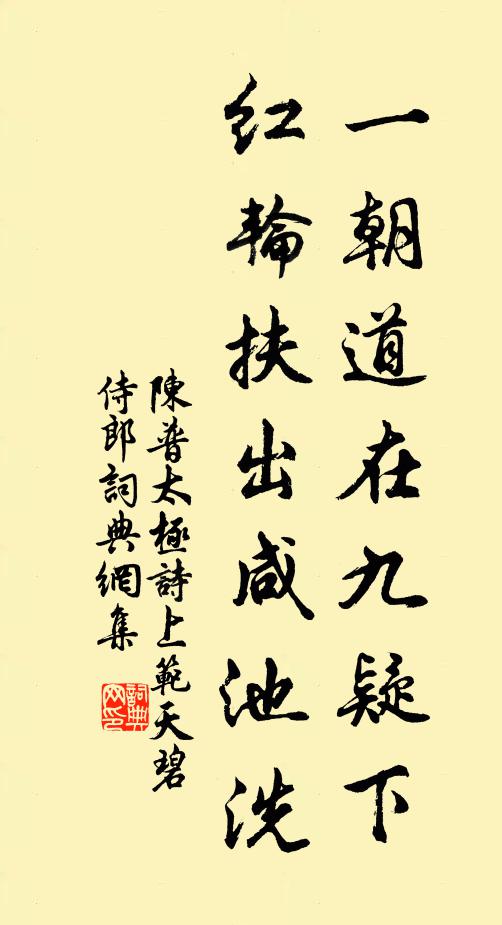 一朝道在九疑下
紅輪扶出咸池洗
陳普太極詩上範天碧
侍郎詞典網集
詞典网印